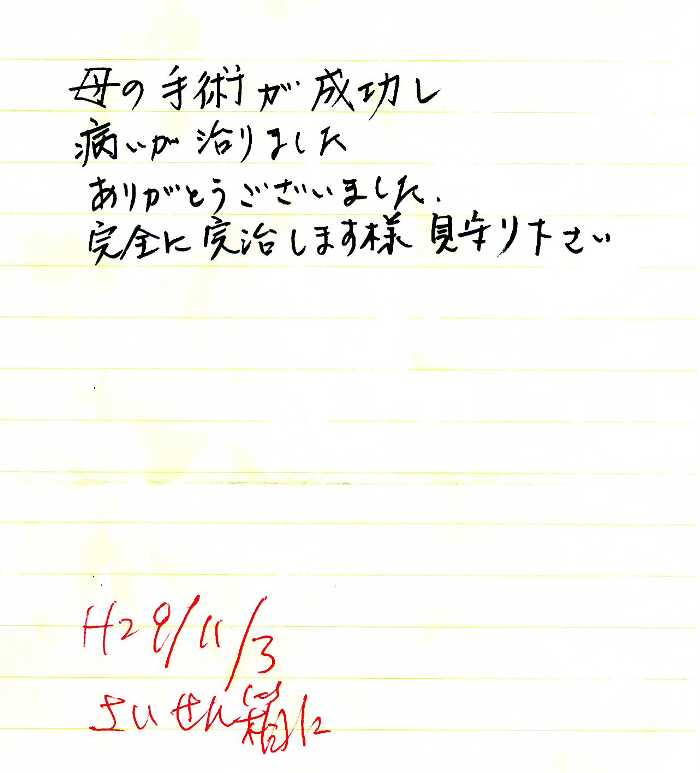 母の手術が成功し
病いが治りました
ありがとうございました.
完全に完治します様 見守り下さい
H29/11/3
さいせん箱に